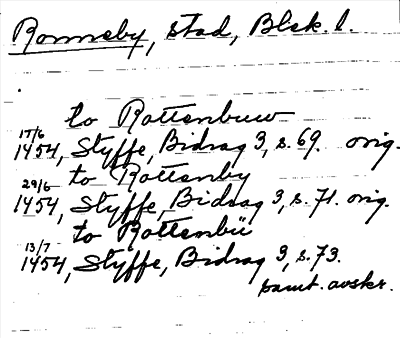 Ronneby, stad, Blek. l.
to Rottenbuw
17/6
1454, Styffe, Bidrag 3, s. 69. orig.
to Rottenby
29/6
1454, Styffe, Bidrag 3, s. 71. orig.
to Rottenbü
13/7
1454, Styffe, Bidrag 3, s. 73.
samt. avskr.